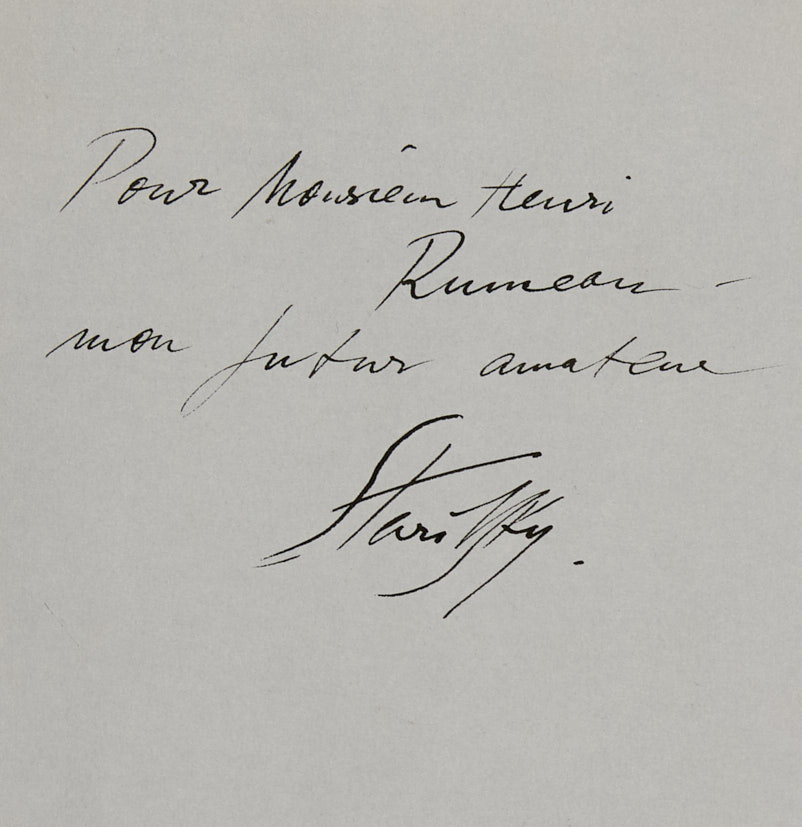 Pour Monsieur Henri
Rumeau -
mon futur amateur
Staritsky.